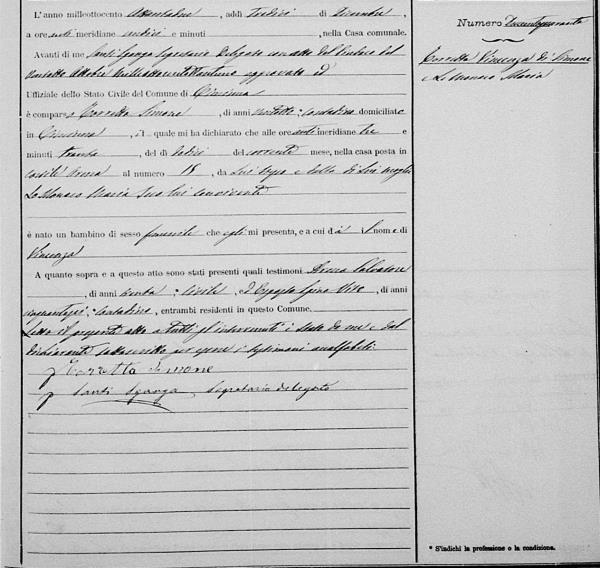 L'anno milleottocento ottantadue, addì tredici di Dicembre,
a ore anti meridiane undici e minuti, nella Casa comunale.
Avanti di me Santi Sgarga Segretario Delegato con atto del Sindaco del
ventotto Ottobre milleottocento approvato ed
Uffiziale dello Stato Civile del Comune di Ciminna
è comparso Corretta Simone, di anni, contadino domiciliato
in Ciminna, il quale mi ha dichiarato che alle ore anti meridiane tre e
minuti trenta, del dì dodici del corrente mese, nella casa posta in
cortile al numero 18, da Lui stesso e dalla di Lui moglie
Lo Monaco Maria seco lui convivente
è nato un bambino di sesso femminile che egli mi presenta, e a cui dà il nome di
Vincenza
A quanto sopra e a questo atto sono stati presenti quali testimoni Salvatore
, di anni trenta, civile, e, di anni
contadino, entrambi residenti in questo Comune.
Letto il presente atto a tutti gl'intervenuti è stato da me e dal
dichiarante sottoscritto per essere i testimoni analfabeti.
Corretta Simone
Santi Sgarga Segretario delegato
Numero Duecentoquaranta
Corretta Vincenza di Simone
e Lo Monaco Maria
* S'indichi la professione o la condizione.